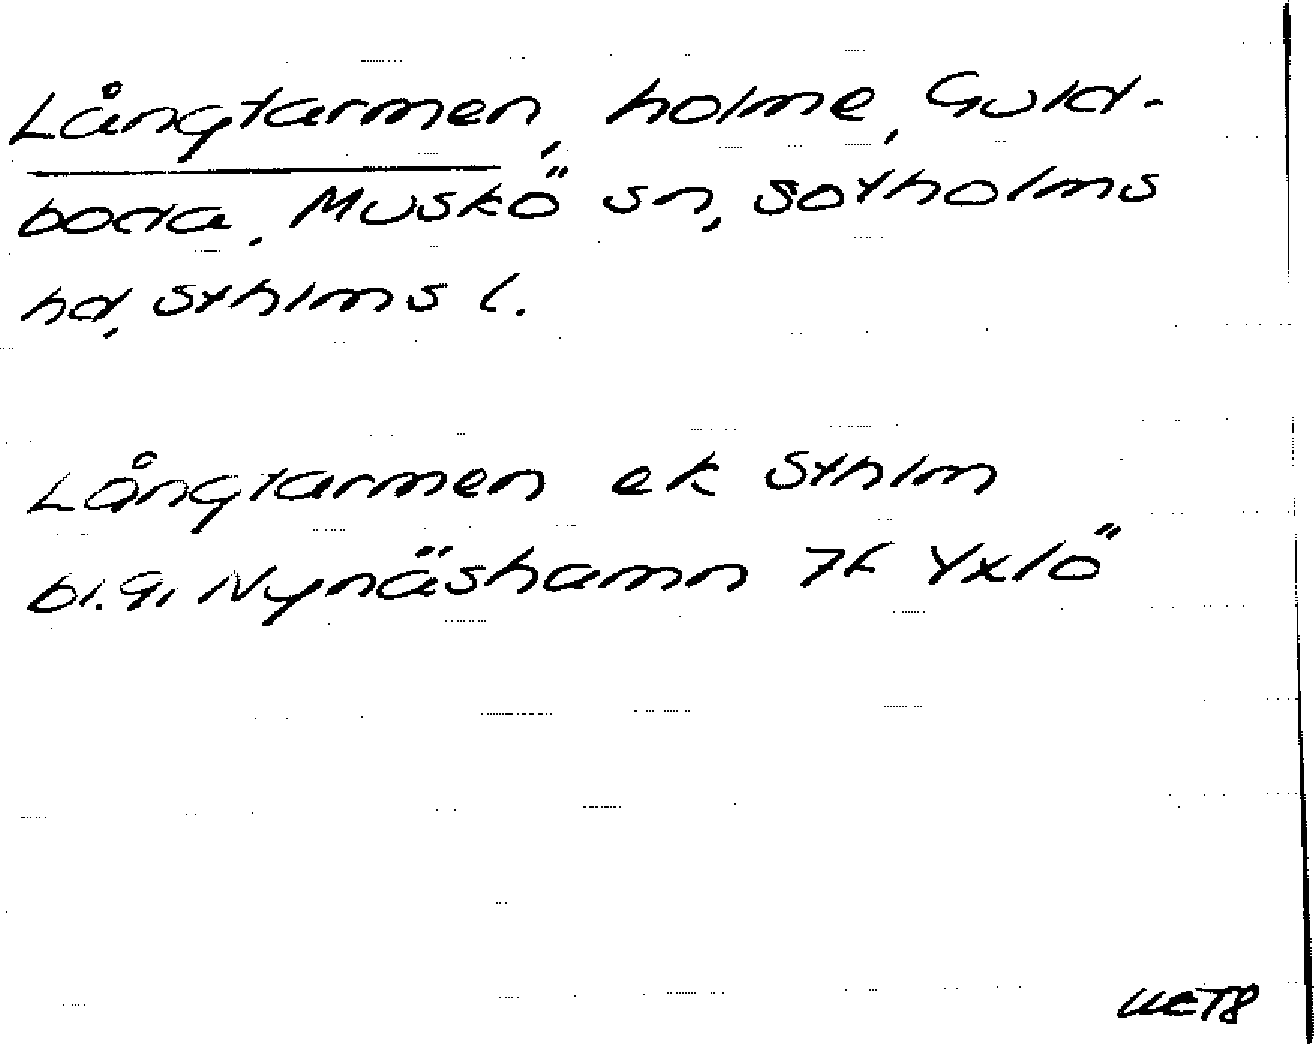 Långtarmen, holme, Guld-
boda, Muskö sn, Sotholms
hd, Sthlms l.
Långtarmen ek Sthlm
bl. 9, Nynäshamn 7f Yxlö